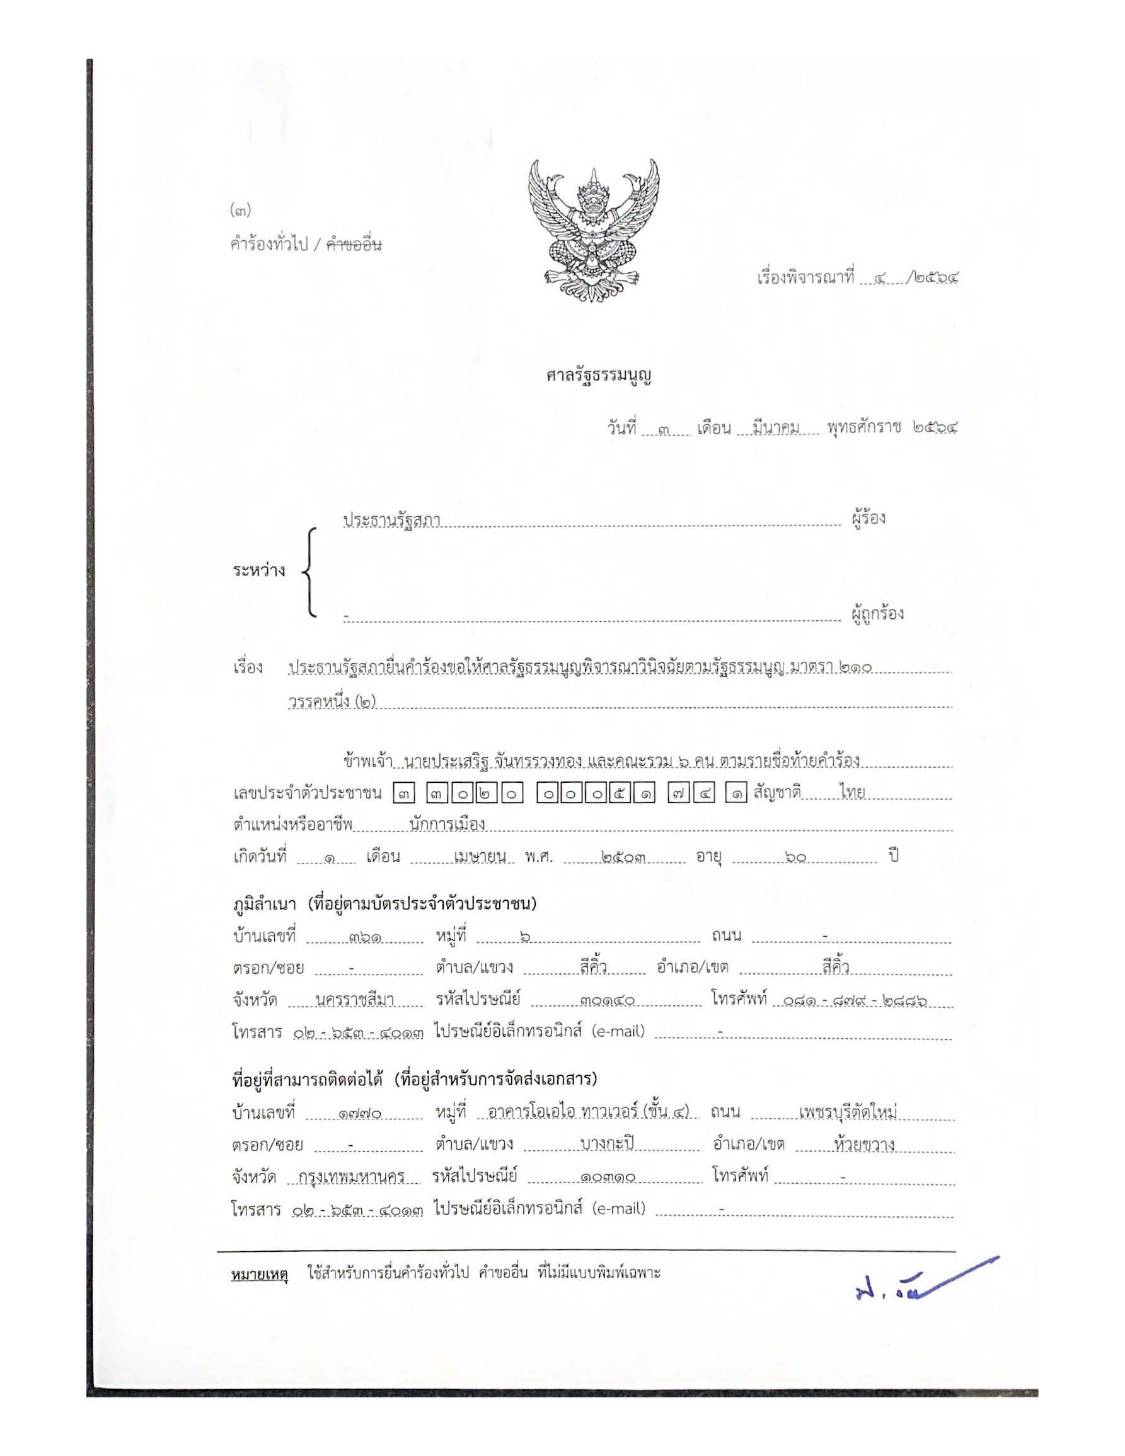 (๓)
คำร้องทั่วไป / คำขออื่น
เรื่องพิจารณาที่ ๔ /๒๕๖๔
ศาลรัฐธรรมนูญ
วันที่ ๓ เดือน มีนาคม พุทธศักราช ๒๕๖๔
ประธานรัฐสภา ผู้ร้อง
ระหว่าง
- ผู้ถูกร้อง
เรื่อง ประธานรัฐสภายื่นคำร้องขอให้ศาลรัฐธรรมนูญพิจารณาวินิจฉัยตามรัฐธรรมนูญ มาตรา ๒๑๐
วรรคหนึ่ง (๒)
ข้าพเจ้า นายประเสริฐ จันทรรวงทอง และคณะรวม ๖ คน ตามรายชื่อท้ายคำร้อง
เลขประจำตัวประชาชน ๓ ๓๐๒๐ ๐๐๐๕๑ ๗๔ ๑ สัญชาติ ไทย
ตำแหน่งหรืออาชีพ นักการเมือง
เกิดวันที่ ๑ เดือน เมษายน พ.ศ. ๒๕๐๓ อายุ ๖๐ ปี
ภูมิลำเนา (ที่อยู่ตามบัตรประจำตัวประชาชน)
บ้านเลขที่ ๓๖๑ หมู่ที่ ๖ ถนน -
ตรอก/ซอย - ตำบล/แขวง สีคิ้ว อำเภอ/เขต สีคิ้ว
จังหวัด นครราชสีมา รหัสไปรษณีย์ ๓๐๑๔๐ โทรศัพท์ ๐๘๑ - ๘๗๙ - ๒๘๘๖
โทรสาร ๐๒ - ๖๕๓ - ๔๐๑๓ ไปรษณีย์อิเล็กทรอนิกส์ (e-mail) -
ที่อยู่ที่สามารถติดต่อได้ (ที่อยู่สำหรับการจัดส่งเอกสาร)
บ้านเลขที่ ๑๗๗๐ หมู่ที่ อาคารโอเอไอ ทาวเวอร์ (ชั้น ๔) ถนน เพชรบุรีตัดใหม่
ตรอก/ซอย - ตำบล/แขวง บางกะปิ อำเภอ/เขต ห้วยขวาง
จังหวัด กรุงเทพมหานคร รหัสไปรษณีย์ ๑๐๓๑๐ โทรศัพท์ -
โทรสาร ๐๒ - ๖๕๓ - ๔๐๑๓ ไปรษณีย์อิเล็กทรอนิกส์ (e-mail) -
หมายเหตุ ใช้สำหรับการยื่นคำร้องทั่วไป คำขออื่น ที่ไม่มีแบบพิมพ์เฉพาะ